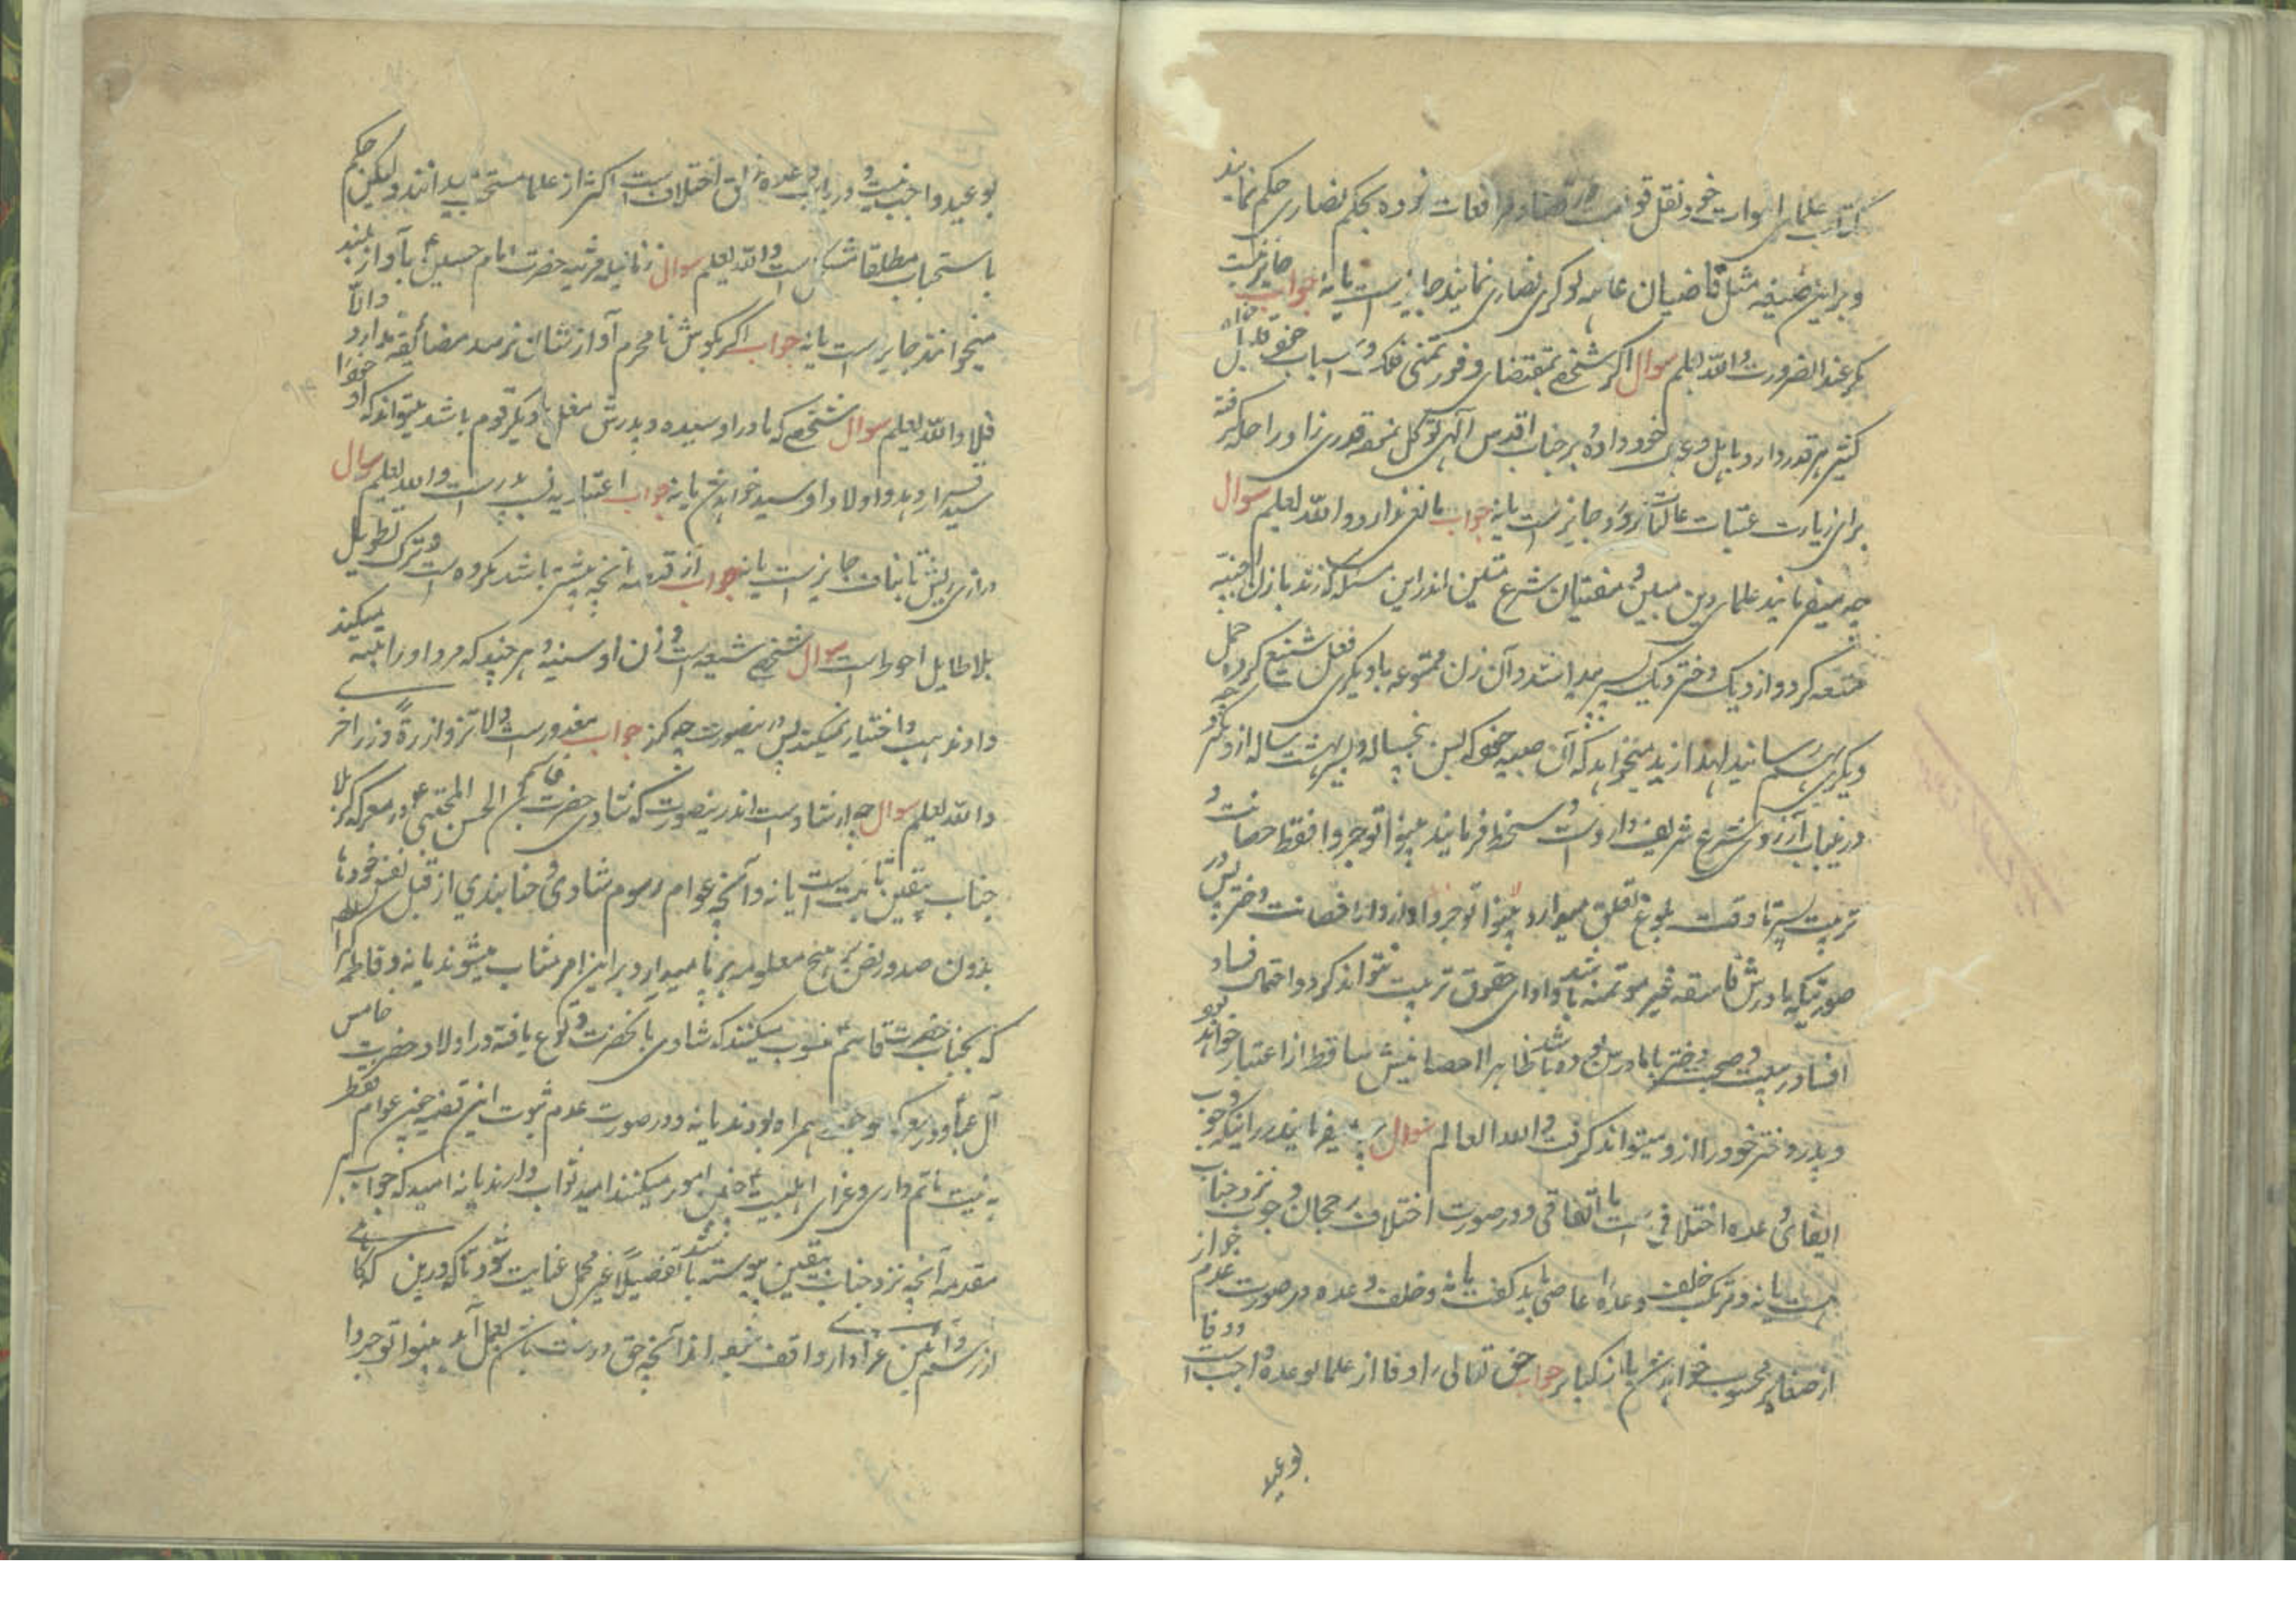 کتب علمای اموات خود نقل قو در قضا و مرافعات نموده بحکم نصاری حکم نمایند
و براین صیغه مثل قاضیان عامه نوکری نصاری نمایند جایز است یا نه جواب جایز نیست
مگر عند الضرورت و الله یعلم سوال اگر شخصی بمقتضای وفور تمنی فکر و اسباب خواه قلیل
کثیر هر قدر دارد باهل و عیال خود داده بر جناب اقدس الهی توکل نموده قدری زاد راحله گرفته
برای زیارت عتبات عالیات برود جایز است یا نه جواب مانعی ندارد و الله یعلم سوال
چه میفرمایند علمای دین مبین و مفتیان شرع متین اندر این مسئله که زید با زن اجنبیه
متعه کرد و ازو یک دختر و یک پسر پیدا شد و آن زن ممتوعه با دیگری فعل شنیع کرده حمل
دیگری بهم رسانید لهذا زید میخواهد که آن صبیه خود که بسن پنجساله و پسر هشت ساله ازو بگیرد
درین باب آنرزوی شرع شریف دارد است دستخط فرمایند بینوا توجروا فقط حصانت و
تربیت پسر تا وقت بلوغ تعلق میدارد بینوا توجروا و حصانت دختر پس در
صورتیکه مادرش فاسقه غیر موتمنه باشد و ادای حقوق تربیت نتواند کرد و احتمال فساد
افساد در بیت و صحبت دختر با مادر بوده باشد ظاهرا حصانتش ساقط از اعتبار خواهد بود
و پدر دختر خود را ازو میتواند گرفت و الله العالم سوال چه میفرمایند در اینکه وجوب
ایفای وعده اختلافی است یا اتفاقی و در صورت اختلاف رجحان وجوب نزد جناب
است یا نه و ترک خلف وعده را عاصی باید گفت یا نه و خلف وعده در صورت عدم جواز
از صغایر محسوب خواهد شد یا از کبایر جواب حق تعالی را وفا از علما بوعده واجب است و وفا
بوعید
بوعید واجب نیست و در باب وعده خلق اختلاف است اکثر از علما مستحب میدانند و لیکن حکم
باستحباب مطلقا مشکل است و الله یعلم سوال زنانیکه مرثیه حضرت امام حسین ع بآواز بلند
میخوانند جایز است یا نه جواب اگر بگوش نامحرم آوازشان نرسد مضائقه ندارد و الا
فلا و الله یعلم سوال شخصی که مادر او سیده و پدرش مغل یا دیگر قوم باشد میتواند که او خود را
سید قرار دهد و اولاد او سید خواهد شد یا نه جواب اعتبار به نسب پدر است و الله یعلم سوال
درازی ریش تا بناف جایز است یا نه جواب از قبضه آنچه بیشتر باشد مکروه است و ترک تطویل
بلا طایل احوط است سوال شخصی شیعه است و زن او سنیه و هر چند که مرد او را تنبیه میکند
و او مذهب را اختیار نمیکند پس درینصورت چه کند جواب معذور است و لا تزر وازرة وزر اخری
و الله یعلم سوال چه ارشاد است اندرینصورت که شادی حضرت قاسم بن الحسن المجتبی ع در معرکه کربلا
جناب بیقین ثابت است یا نه و آنچه عوام رسوم شادی و حنابندی از قبل نفس خودها
بدون صدور نص بر نهج معلومه برپا میدارد بر این امر مثاب میشوند یا نه و فاطمه کبرا
که بجناب حضرت قاسم ع منسوب میکنند که شادی با نحضرت وقوع یافته در اولاد حضرت خامس
آل عبا و در معرکه موجب همراه بودند یا نه و در صورت عدم ثبوت این قضیه چنین عوام فقط
به نیت ماتم داری و عزای اهلبیت ع این امور میکنند امید ثواب دارند یا نه امید که جواب
مقدمه آنچه نزد جناب بیقین پیوسته باشد تفضیلا غیر مجمل عنایت شود تا که درین
از رسم و آئین عزادار واقف شیعه اند آنچه حق و درست بعمل آید بینوا توجروا